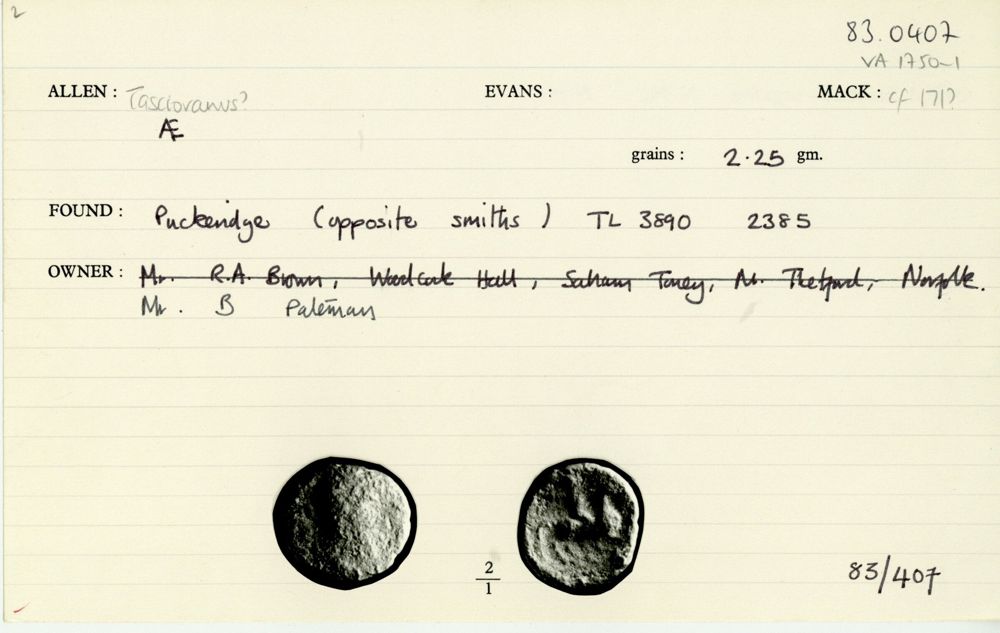 2
83.0407
VA 1750-1
ALLEN : Tasciovanus? EVANS : MACK : cf 171?
Æ
grains : 2.25 gm.
FOUND : Puckeridge (opposite smiths) TL 3890 2385
OWNER : Mr. R.A. Brown, Woodcock Hall, Saham Toney, Nr. Thetford, Norfolk.
Mr. B Pateman
2
1
83/407